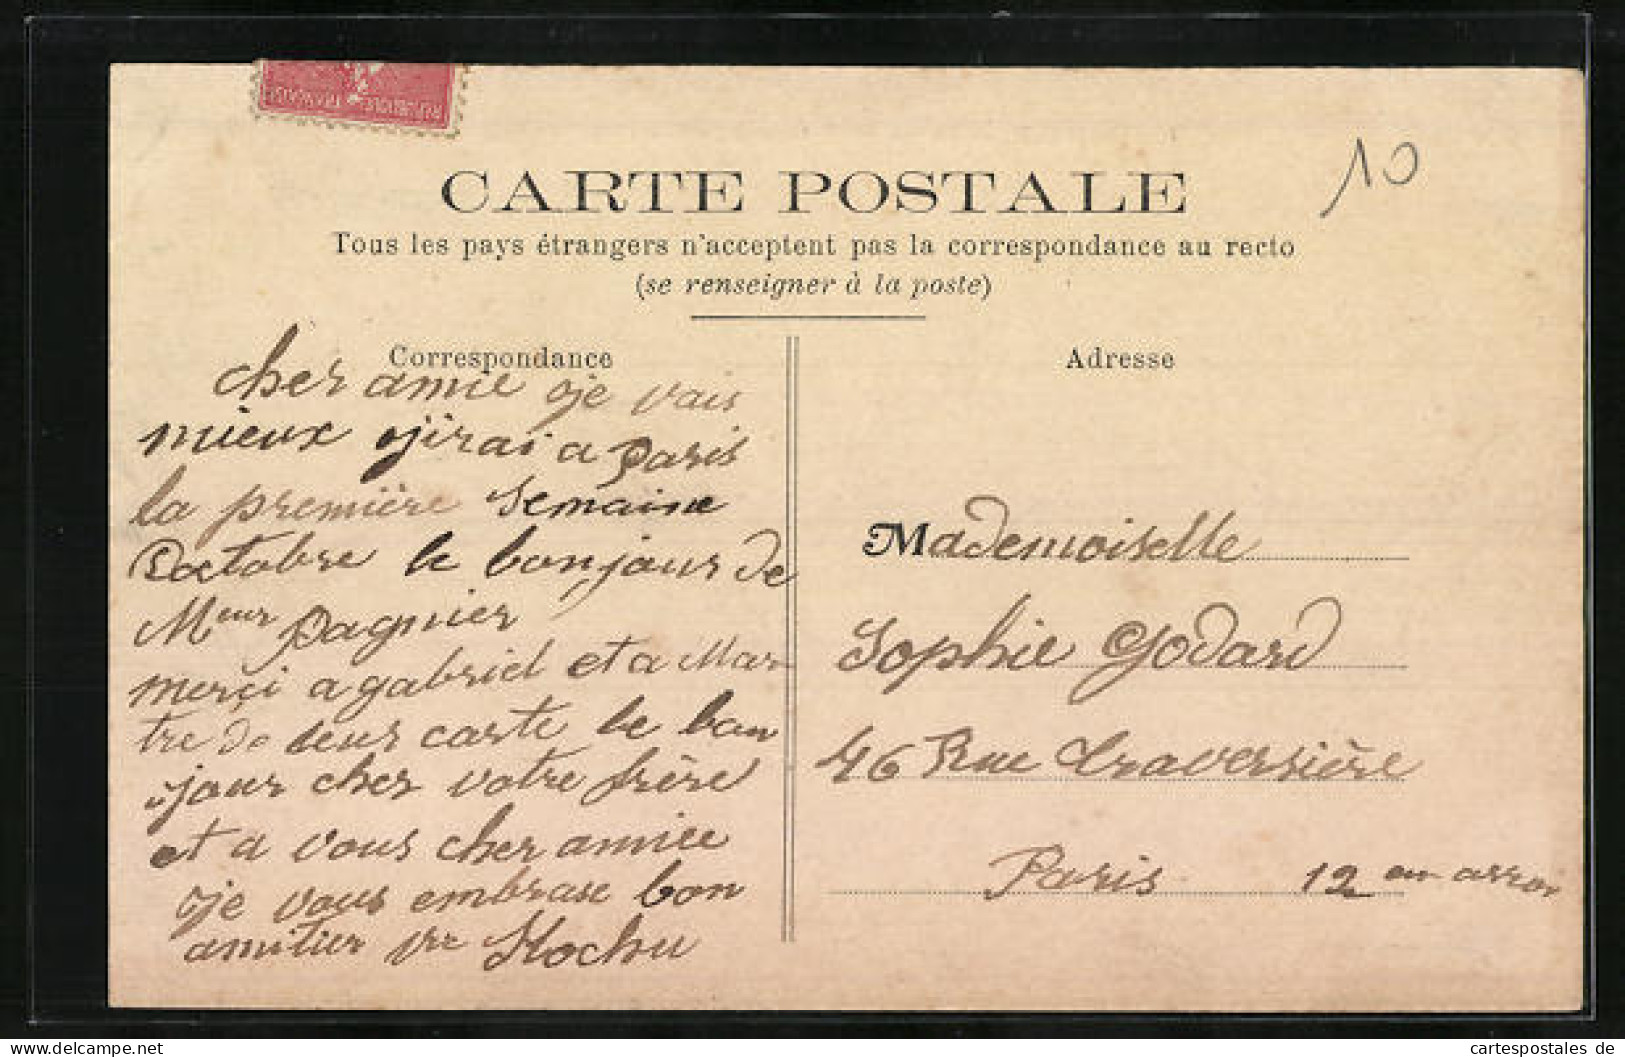 RÉPUBLIQUE FRANÇAISE
10
CARTE POSTALE
Tous les pays étrangers n'acceptent pas la correspondance au recto
(se renseigner à la poste)
Correspondance
cher amie je vais
mieux jirai a Paris
la première Semaine
Doctobre le bonjour de
Meur Pagnier
merçi a gabriel et a Mar
tre de leur carte le bon
jour cher votre frère
et a vous cher amiee
je vous embrase bon
amitier
Adresse
Mademoiselle
Sophie Godard
46 Rue Traversière
Paris 12 em arron
www.cartespostales.de
cartespostales de